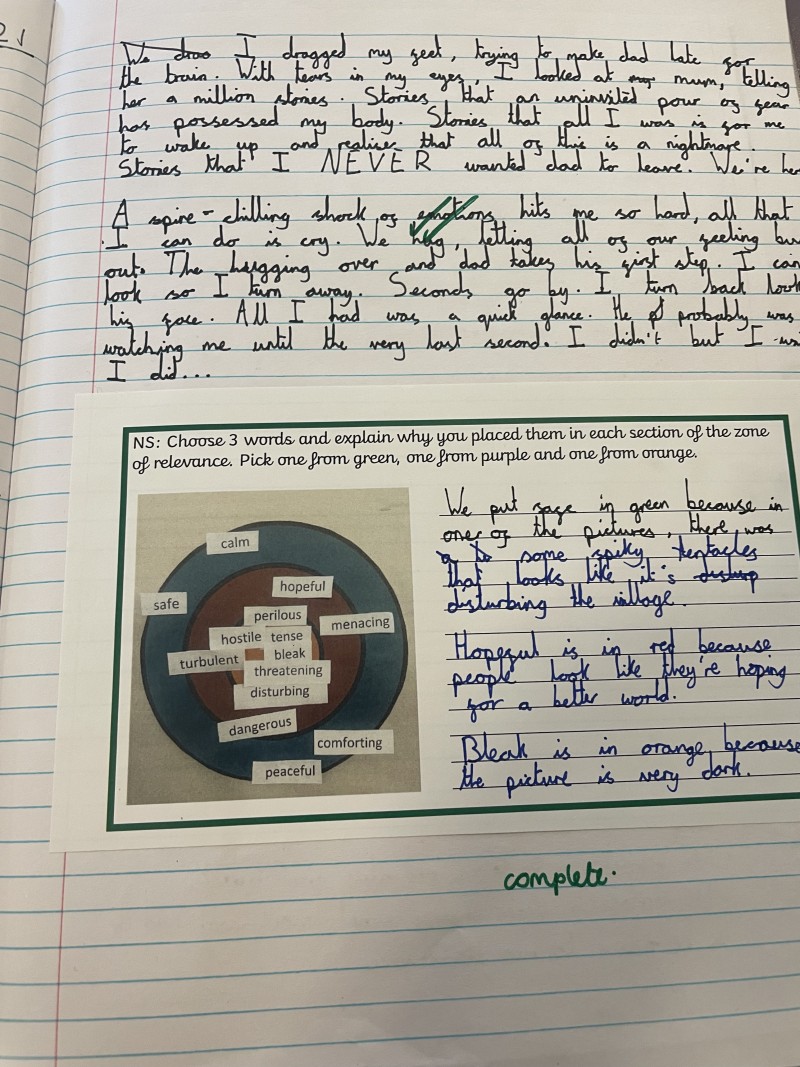 21
We droo I dragged my feet, trying to make dad late for
the train. With tears in my eyes, I looked at my mum, telling
her a million stories. Stories that an uninvited pour of fear
has possessed my body. Stories that all I was is for me
to wake up and realise that all of this is a nightmare.
Stories that I NEVER wanted dad to leave. We're her
A spire-chilling shock of emotions hits me so hard, all that
I can do is cry. We hug, letting all of our feeling bu
out. The hugging over and dad takes his first step. I can
look so I turn away. Seconds go by. I turn back look
his face. All I had was a quick glance. He probably was
watching me until the very last second. I didn't but I
I did...
NS: Choose 3 words and explain why you placed them in each section of the zone
of relevance. Pick one from green, one from purple and one from orange.
calm
hopeful
safe
perilous
menacing
hostile
tense
turbulent
bleak
threatening
disturbing
dangerous
comforting
peaceful
We put safe in green because in
one of the pictures, there was
to some spiky tentacles
that looks like it's disturp
disturbing the village.
Hopeful is in red because
people look like they're hoping
for a better world.
Bleak is in orange because
the picture is very dark.
complete.